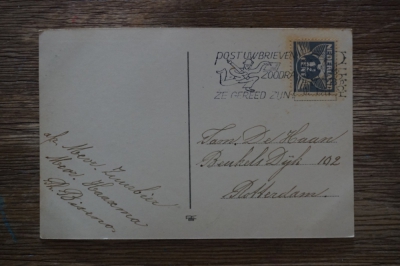 POST UW BRIEVEN
ZOODRA
ZE GEREED ZIJN
NEDERLAND
Fam. De Haan
Beukels Dijk 102
Rotterdam.
afz. Mevr.
Mevr. Haaxma